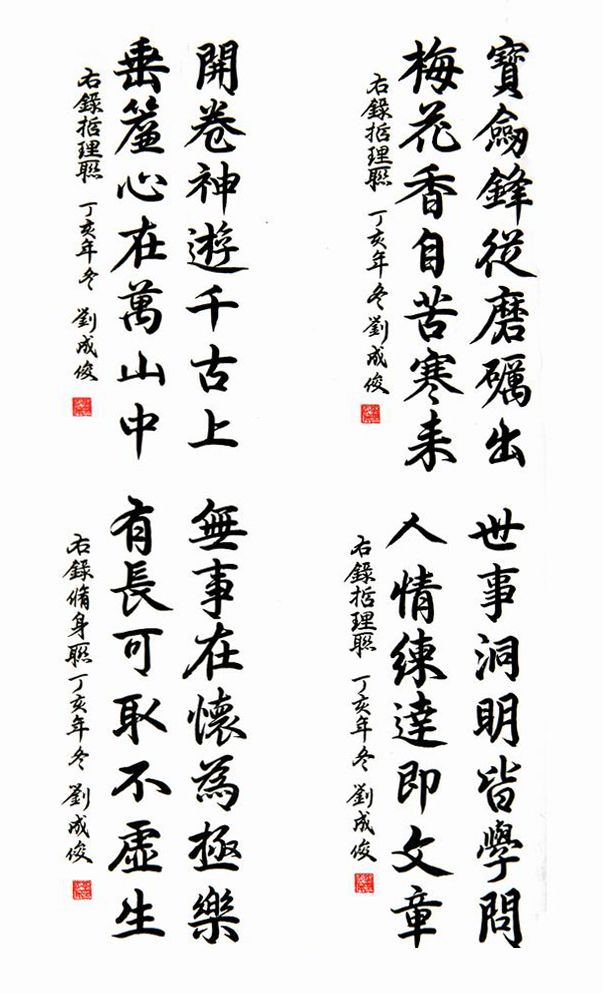 寶劔鋒從磨礪出
梅花香自苦寒来
右錄哲理聯 丁亥年冬 劉成俊
開卷神遊千古上
垂簾心在萬山中
右錄哲理聯 丁亥年冬 劉成俊
世事洞明皆學問
人情練達即文章
右錄哲理聯 丁亥年冬 劉成俊
無事在懷為極樂
有長可取不虛生
右錄脩身聯 丁亥年冬 劉成俊